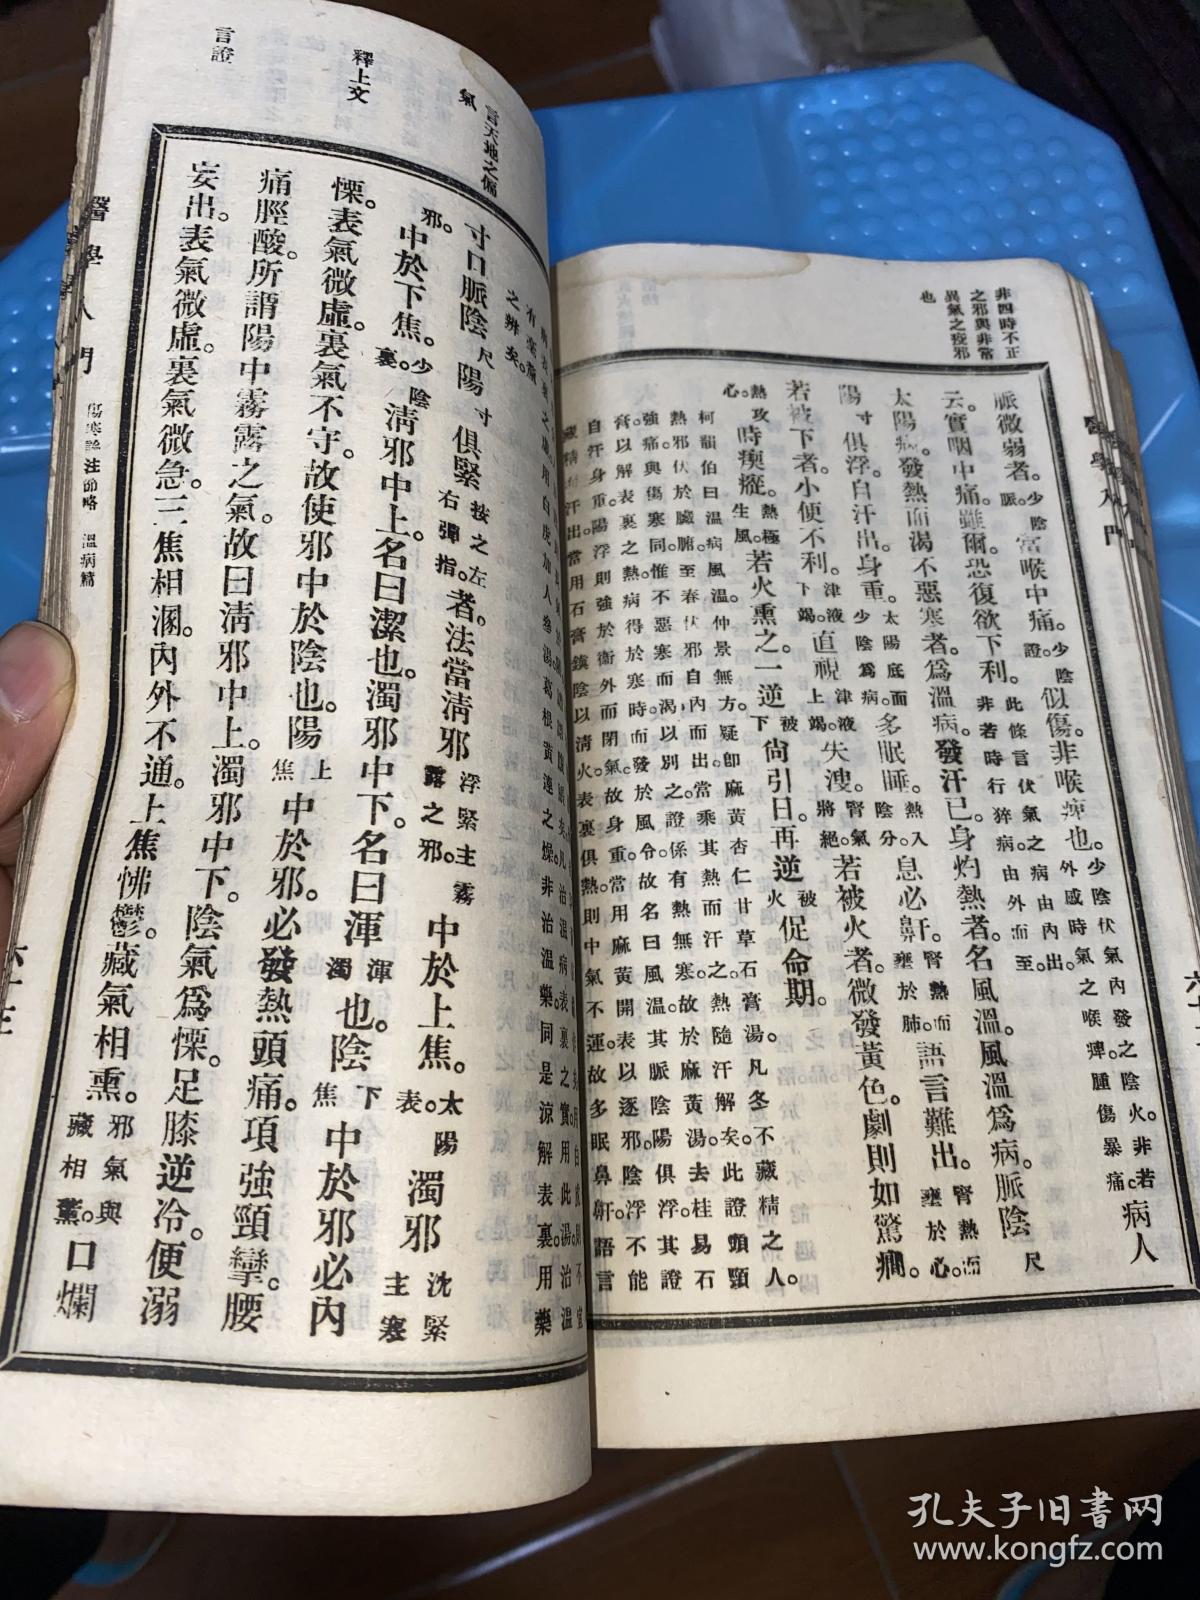 非四時不正
之邪與非常
異氣之疫邪
也
脈微弱者。少陰脈。當喉中痛。少陰證。似傷。非喉痺也。少陰伏氣內發之陰火。非若外感時氣之喉痺。腫傷暴痛。病人
云。實咽中痛。雖爾。恐復欲下利。此條言伏氣之病由內出。非若時行猝病。由外而至。
太陽病。發熱而渴不惡寒者。爲溫病。發汗已。身灼熱者。名風溫。風溫爲病。脈陰尺
陽寸俱浮。自汗出。身重。太陽底面少陰爲病。多眠睡。熱入陰分。息必鼾。腎熱而壅於肺。語言難出。腎熱而壅於心。
若被下者。小便不利。津液下竭。直視津液上竭。失溲。腎氣將絕。若被火者。微發黃色。劇則如驚癎。
熱攻心。時瘈瘲。熱極生風。若火熏之。一逆被下尚引日。再逆被火促命期。
柯韻伯曰。溫病風溫。仲景無方。疑卽麻黃杏仁甘草石膏湯。凡冬不藏精之人。
熱邪伏於臟腑。至春伏邪自內而出。當乘其熱而汗之。熱隨汗解矣。此證頭頸
強痛。與傷寒同。惟不惡寒而渴以別之。證係有熱無寒。故於麻黃湯去桂易石
膏。以解表裏之熱。病得於寒時。而發於風令。故名曰風溫。其脈陰陽俱浮。其證
自汗身重。陽浮則強於衛外而閉氣。故身重。當用麻黃開表以逐邪。陰浮不能
藏精而汗出。當用石膏鎮陰以清火。表裏俱熱。則中氣不運。故多眠鼻鼾。語言
言天地之偏
氣
釋上文
言證
用白虎加人參湯。葛根黃連之燥。非治溫藥。同是涼解表裏。用藥
之辨矣。
寸口脈陰尺陽寸俱緊按之左右彈指。者。法當清邪浮緊主霧露之邪。中於上焦。太陽表。濁邪沈緊主寒
邪。中於下焦。少陰裏。清邪中上。名曰潔也。濁邪中下。名曰渾渾濁也。陰下焦中於邪必內
慄。表氣微虛。裏氣不守。故使邪中於陰也。陽上焦中於邪。必發熱頭痛。項強頸攣。腰
痛脛酸。所謂陽中霧露之氣。故曰清邪中上。濁邪中下。陰氣爲慄。足膝逆冷。便溺
妄出。表氣微虛。裏氣微急。三焦相溷。內外不通。上焦怫鬱。藏氣相熏。邪氣與藏相薰。口爛
醫學入門
傷寒論注節略 溫病篇
醫學入門
孔夫子旧书网
www.kongfz.com